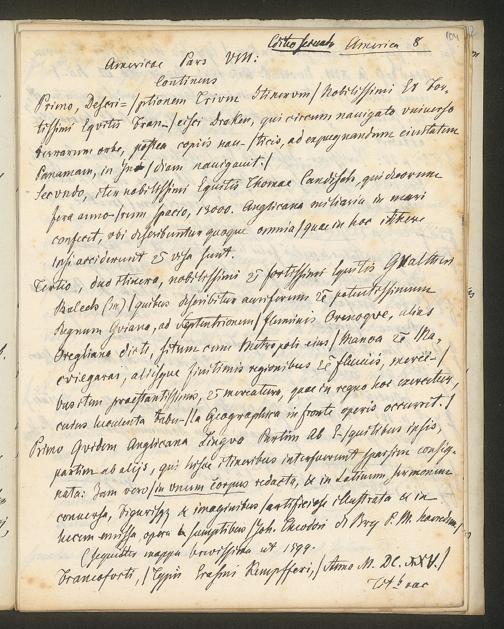 Editio secunda America 8
104
Americae Pars VIII:
Continens
Primo, Descri=/ptionem Trium Itinerum/ Nobilissimi Et For-
tissimi Equitis Fran-/cisci Draken, qui circum navigato universo
terrarum orbe, postea copiis nau-/ticis, ad expugnandum civitatem
Panamam, in In-/diam navigavit./
Secundo, iter nobilissimi Equitis Thomae Candisch, qui duorum
fere anno-/rum spacio, 13000. Anglicana miliaria in mari
confecit, ubi describuntur quoque omnia/ quae in hoc itinere
ipsi acciderunt & visa sunt.
Tertio, duo itinera, nobilissimi & fortissimi Equitis Gualtheri
Ralegh (in)/ quibus describitur auriferum & potentissimum
Regnum Guiana, ad Septentrionem/ fluminis Orenoque, alias
Oregliana dicti, situm cum Metropoli eius/ Manoa & Ma-
cviegarai, aliisque finitimis regionibus & fluviis, merci-/
bus item praestantissimis, & mercatura, quae in regno hoc exercetur,
cuius luculenta Tabu-/la Geographica in fronte operis occurrit./
Primo Quidem Anglicana Lingua Partim Ab E-/quitibus ipsis,
partim ab alijs, qui hisce itineribus interfuerunt sparsim consig-
nata: Iam vero/ in unum Corpus redacta, & in Latinum sermonem
conversa, Figurisq & imaginibus/ artificiose illustrata & in
lucem emissa, opera & sumptibus/ Joh. Theodori di Bry P. M. haeredum,/
(sequitur mappa brevissima ut 1599.
Francoforti,/ Typis Erasmi Kempfferi,/ Anno M. DC. XXV./